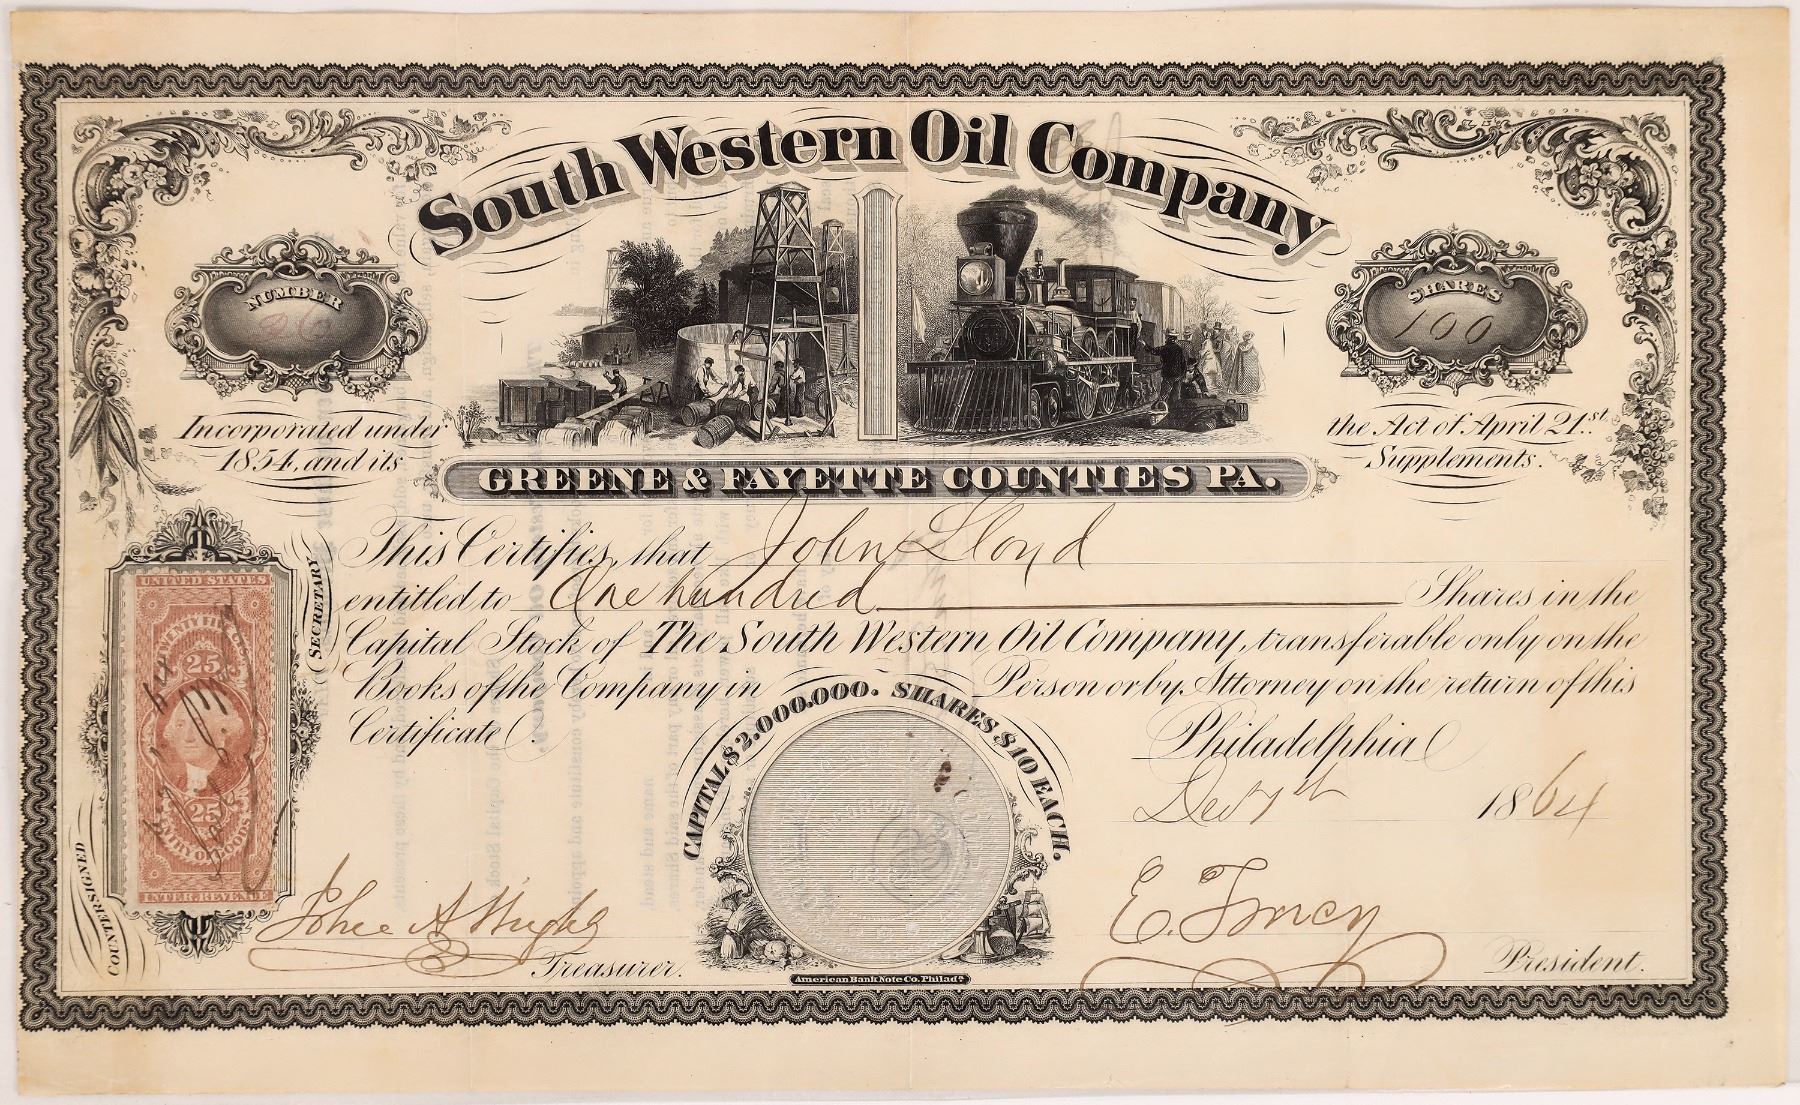 South Western Oil Company
NUMBER
26
SHARES
100
Incorporated under
1854, and its
the Act of April 21st.
Supplements.
GREENE & FAYETTE COUNTIES PA.
This Certifies, that John Lloyd
entitled to One hundred Shares in the
Capital Stock of The South Western Oil Company, transferable only on the
Books of the Company in Person or by Attorney on the return of this
Certificate.
CAPITAL $2.000.000. SHARES $10 EACH.
Philadelphia
Dec 7th 1864
COUNTERSIGNED
SECRETARY
UNITED STATES
TWENTY FIVE
25
25
INTER. REVENUE
Treasurer.
President.
American Bank Note Co. Philada.